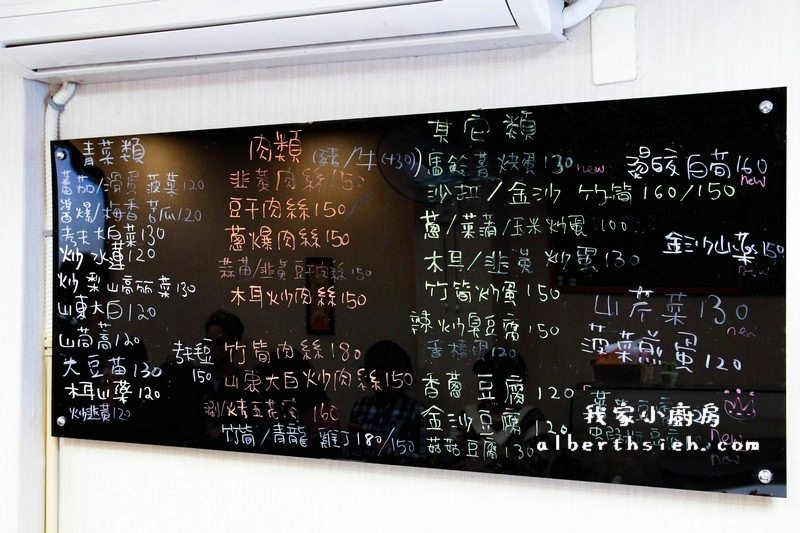 青菜類
蕃茄/滑蛋 菠菜120
炒水蓮120
炒梨山高麗菜130
山東大白120
山茼蒿120
大豆苗130
木耳山藥120
炒韭黃120
肉類 (豬/牛(+30))
韭黃肉絲150
豆干肉絲150
蔥爆肉絲150
蒜苗/韭黃豆干肉絲150
木耳炒肉絲150
竹筍肉絲180
150
山東大白炒肉絲150
160
竹筍/青龍 雞丁180/150
其它類
馬鈴薯烘蛋130 new
金沙 竹筍160/150
蔥/菜脯/玉米炒蛋100
木耳/韭黃炒蛋130
竹筍炒蛋150
辣炒臭豆腐150
120
香菌豆腐120
金沙豆腐120
菇菇豆腐130
白筍160
new
金沙山藥150
new
山芹菜130
new
菠菜煎蛋120
new
new
我家小廚房
alberthsieh.com